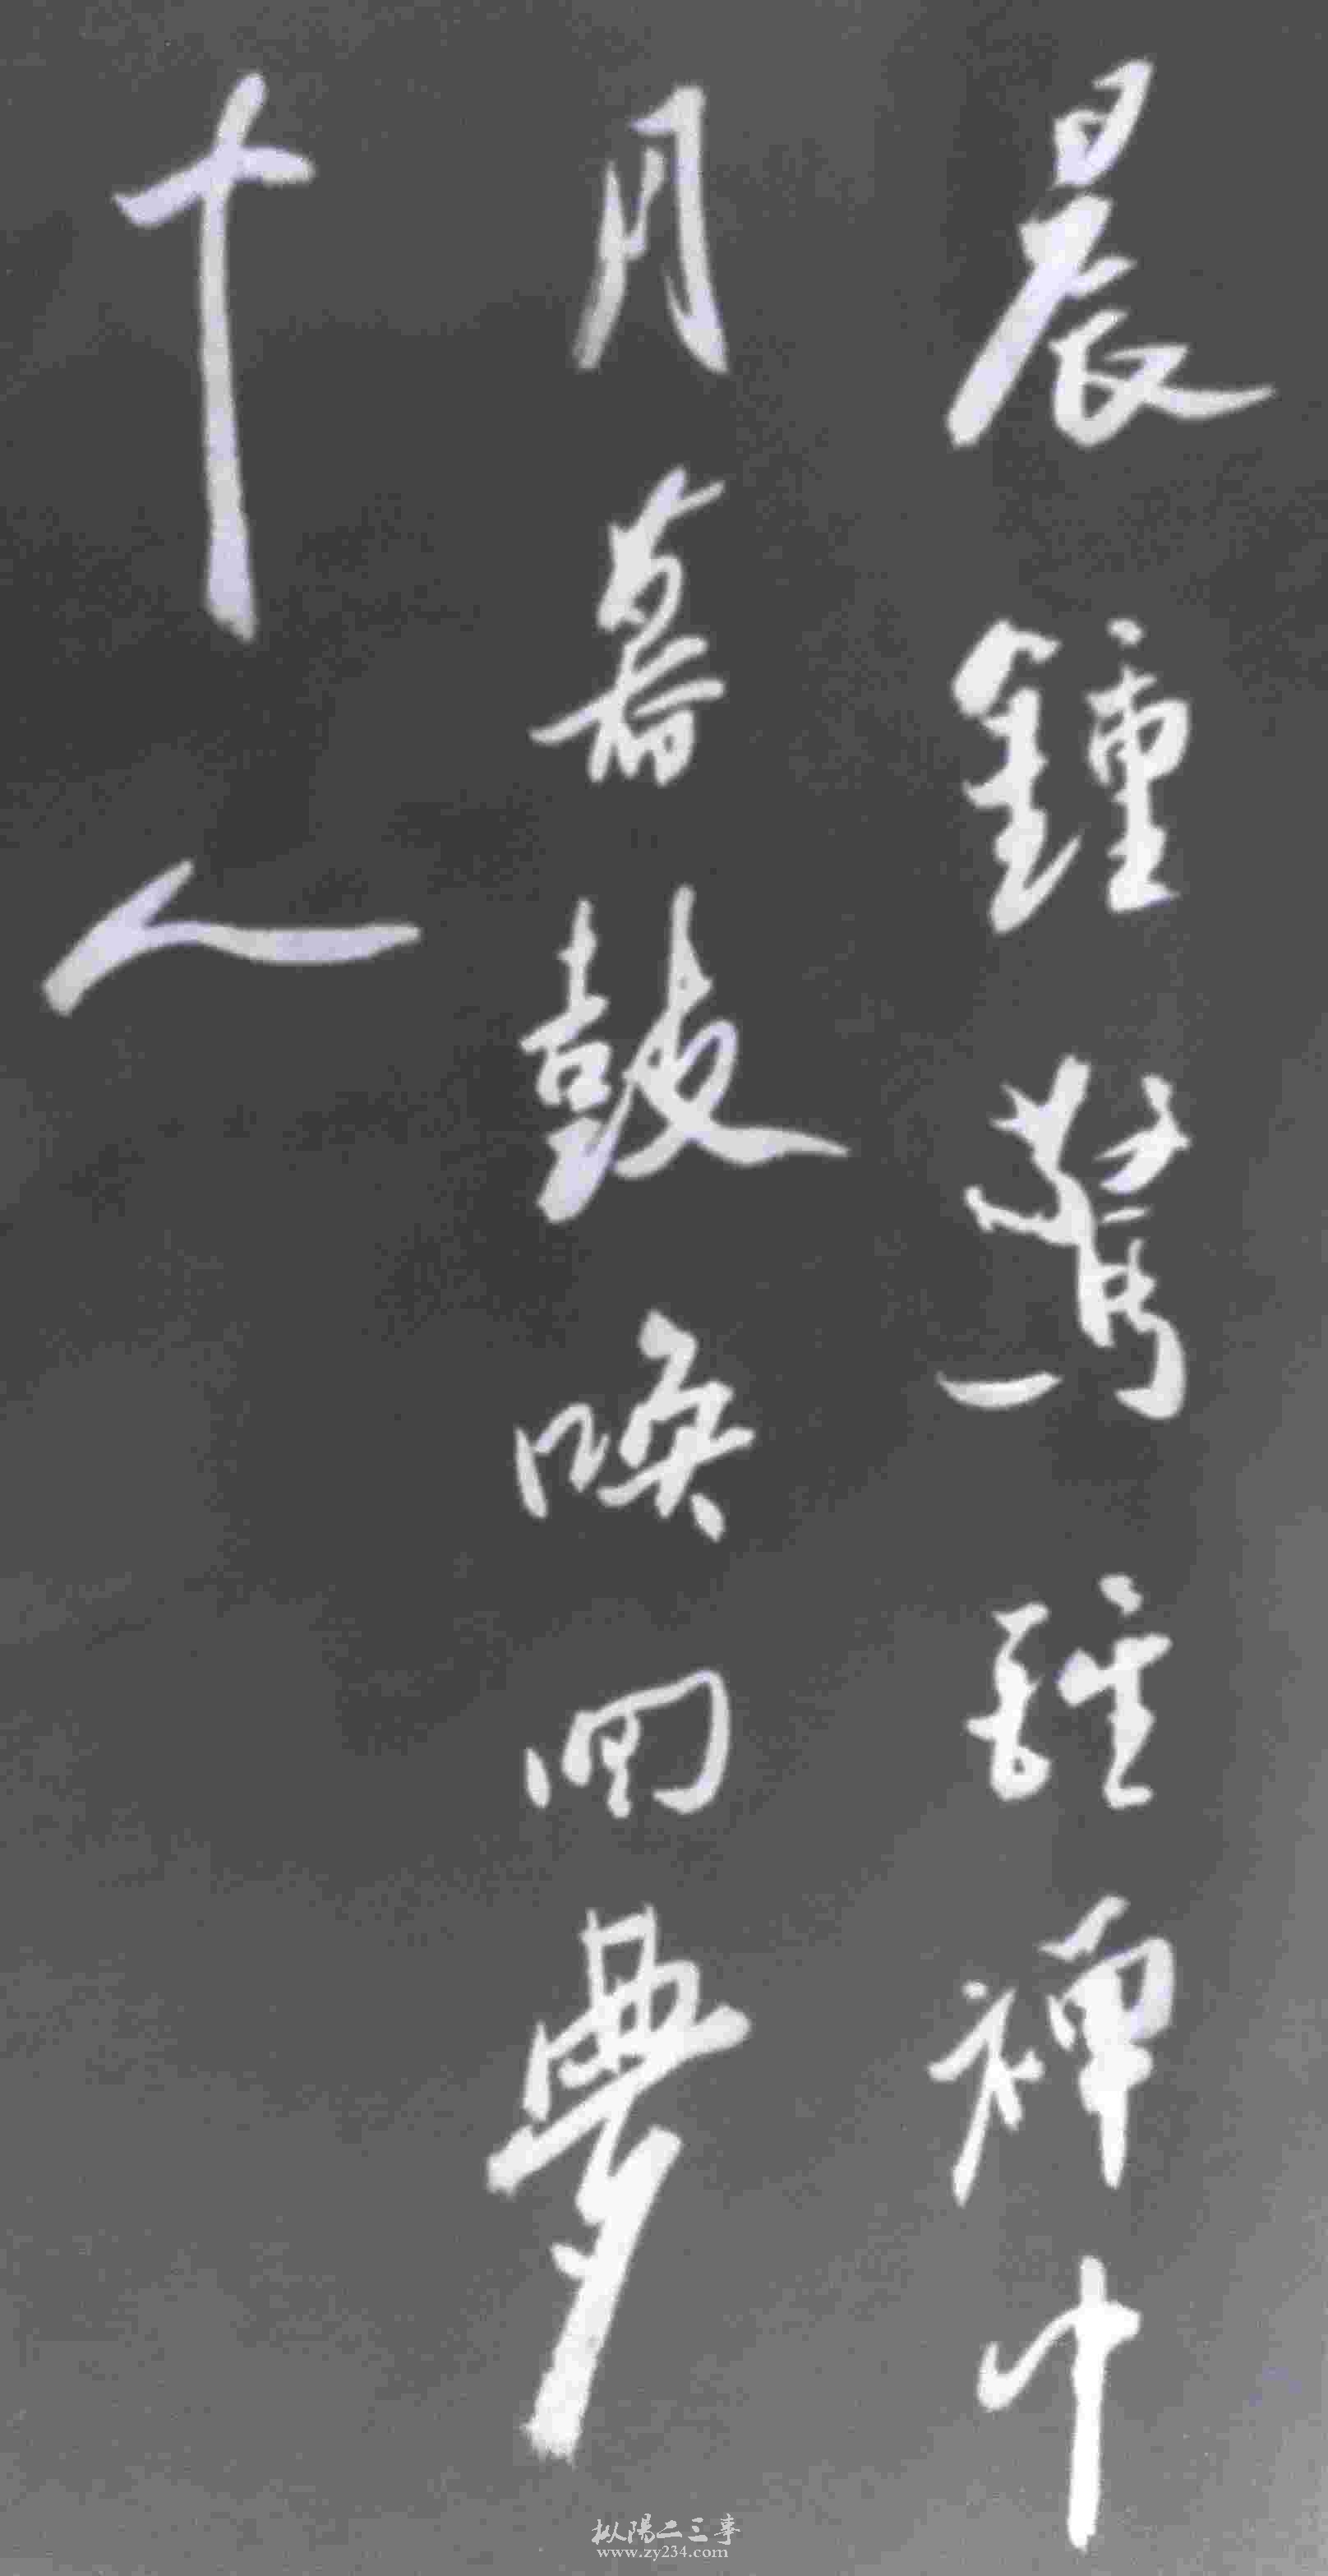 晨鐘驚醒禪中
月暮鼓喚回夢
中人
枞陽二三事
www.zy234.com